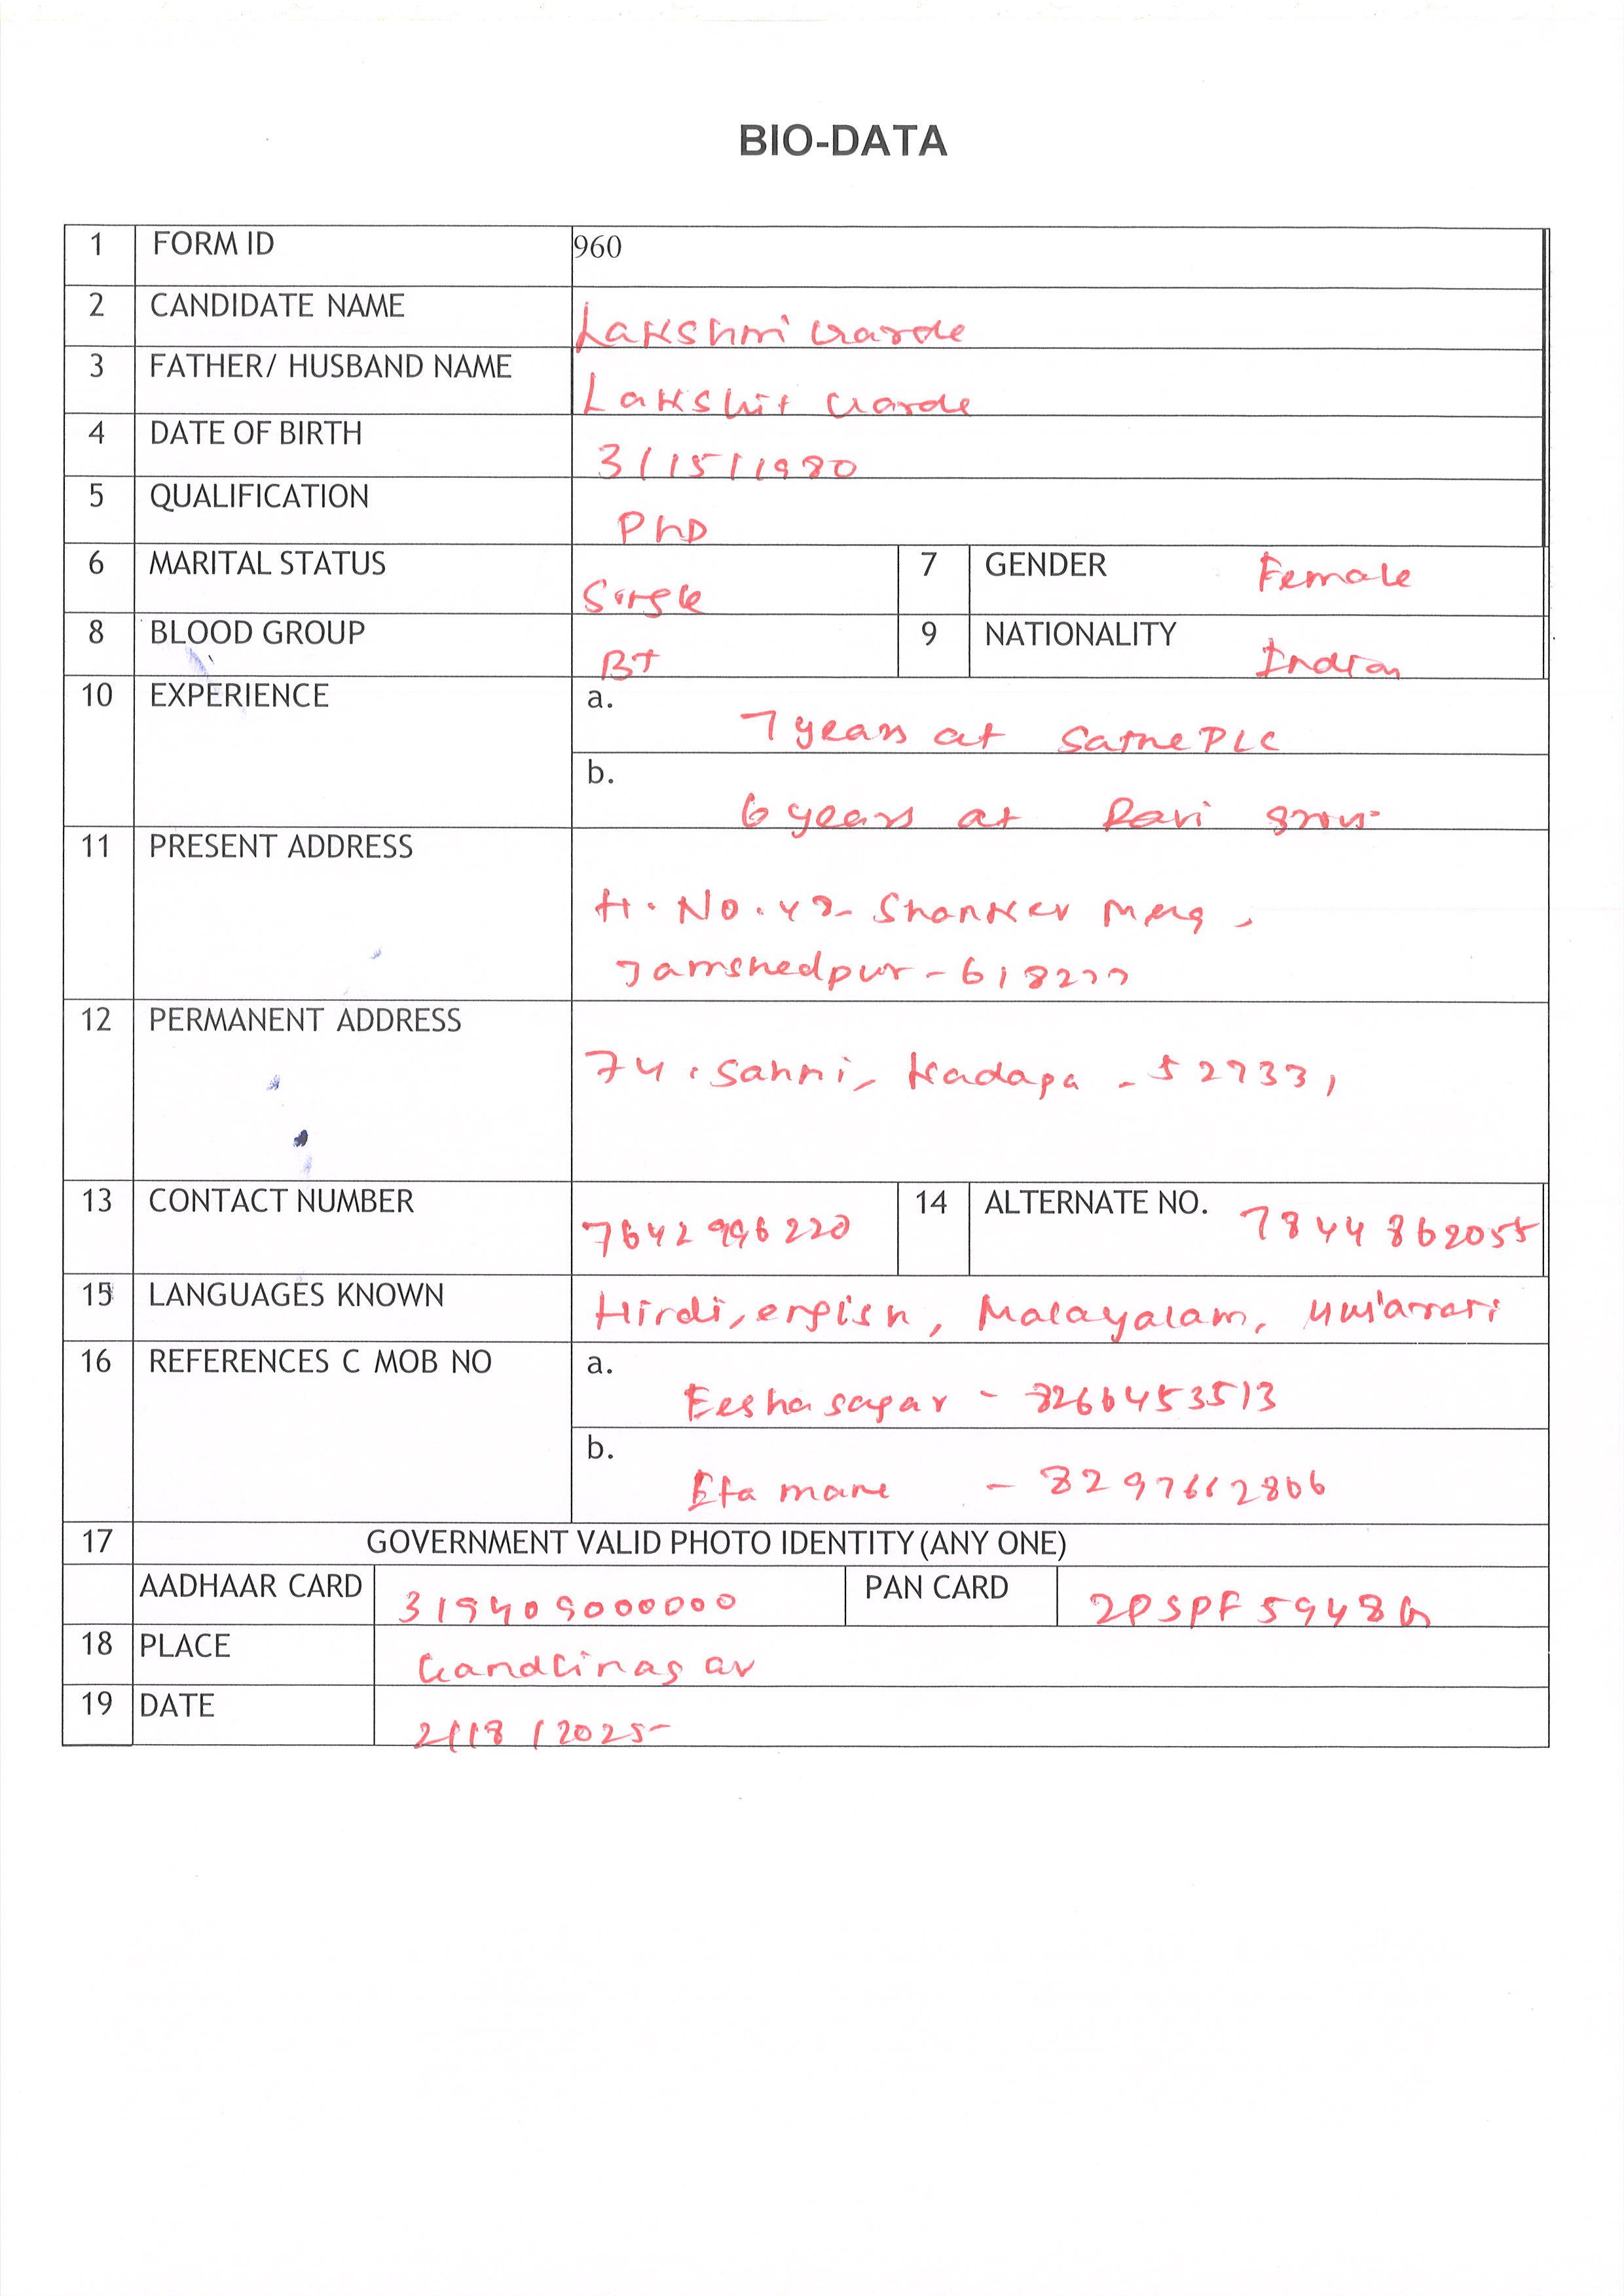 BIO-DATA
1 FORM ID 960
2 CANDIDATE NAME Lakshmi Garde
3 FATHER/ HUSBAND NAME Lakshit Garde
4 DATE OF BIRTH 3/15/1980
5 QUALIFICATION PhD
6 MARITAL STATUS Single 7 GENDER Female
8 BLOOD GROUP B+ 9 NATIONALITY Indian
10 EXPERIENCE a. 7 years at Sathe PLC
b. 6 years at Ravi
11 PRESENT ADDRESS H. No. 42- Shanker Marg,
Jamshedpur - 618277
12 PERMANENT ADDRESS 74, Sahni, Kadapa - 527331
13 CONTACT NUMBER 7642996220 14 ALTERNATE NO. 7844862055
15 LANGUAGES KNOWN Hindi, english, Malayalam, Gujarati
16 REFERENCES C MOB NO a. Eesha sagar - 8266453513
b. Eta mane - 8297662806
17 GOVERNMENT VALID PHOTO IDENTITY (ANY ONE)
AADHAAR CARD 319409000000 PAN CARD 2PSPF5948G
18 PLACE Gandhinagar
19 DATE 2/18/2025